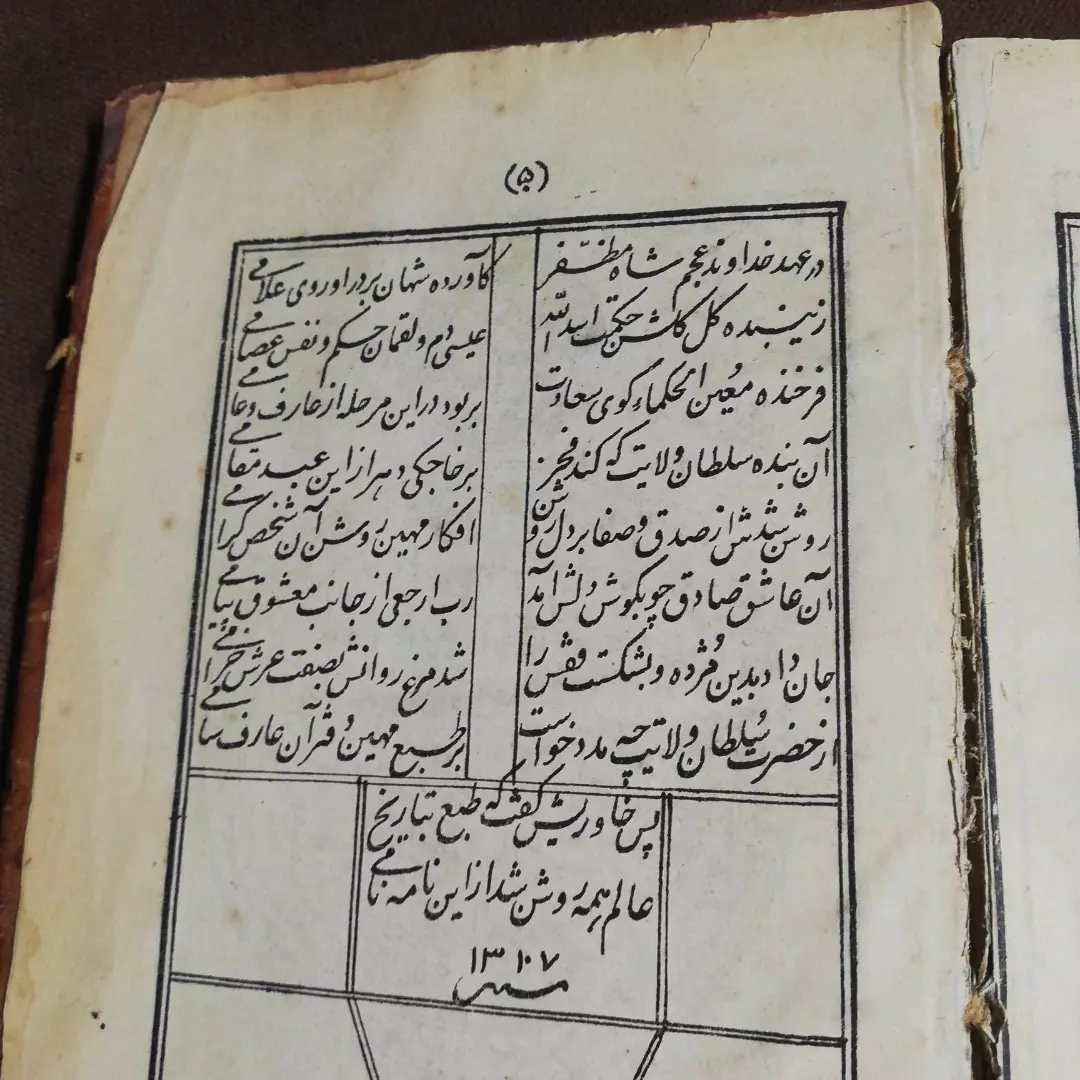 (۵)
در عهد خداوند عجم شاه مظفّر
کاورده شهان بر در او روی غلامی
زیبنده گل گلشن حکمت اسدالله
عیسی دم و لقمان حکم و نفس عصامی
فرخنده مُعین الحکماء کوی سعادت
بربود در این مرحله از عارف و عامی
آن بنده سلطان ولایت که کند فخر
بر خواجگی دهر از این عبد مقامی
روشن شدش از صدق و صفا بر دل روشن
افکار مهین روشن آن شخص گرامی
آن عاشق صادق چو بگوش دلش آمد
رب ارجعی از جانب معشوق پیامی
جان داد بدین مُژده و بشکست قفس را
شد مرغ روانش بصفت عرش خرامی
از حضرت سُلطان ولایت چه مدد خواست
بر طبع مهین دفتر آن عارف سامی
پس خاوریش گفت که طبع بتاریخ
عالم همه روشن شد از این نامه نامی
۱۳۰۷